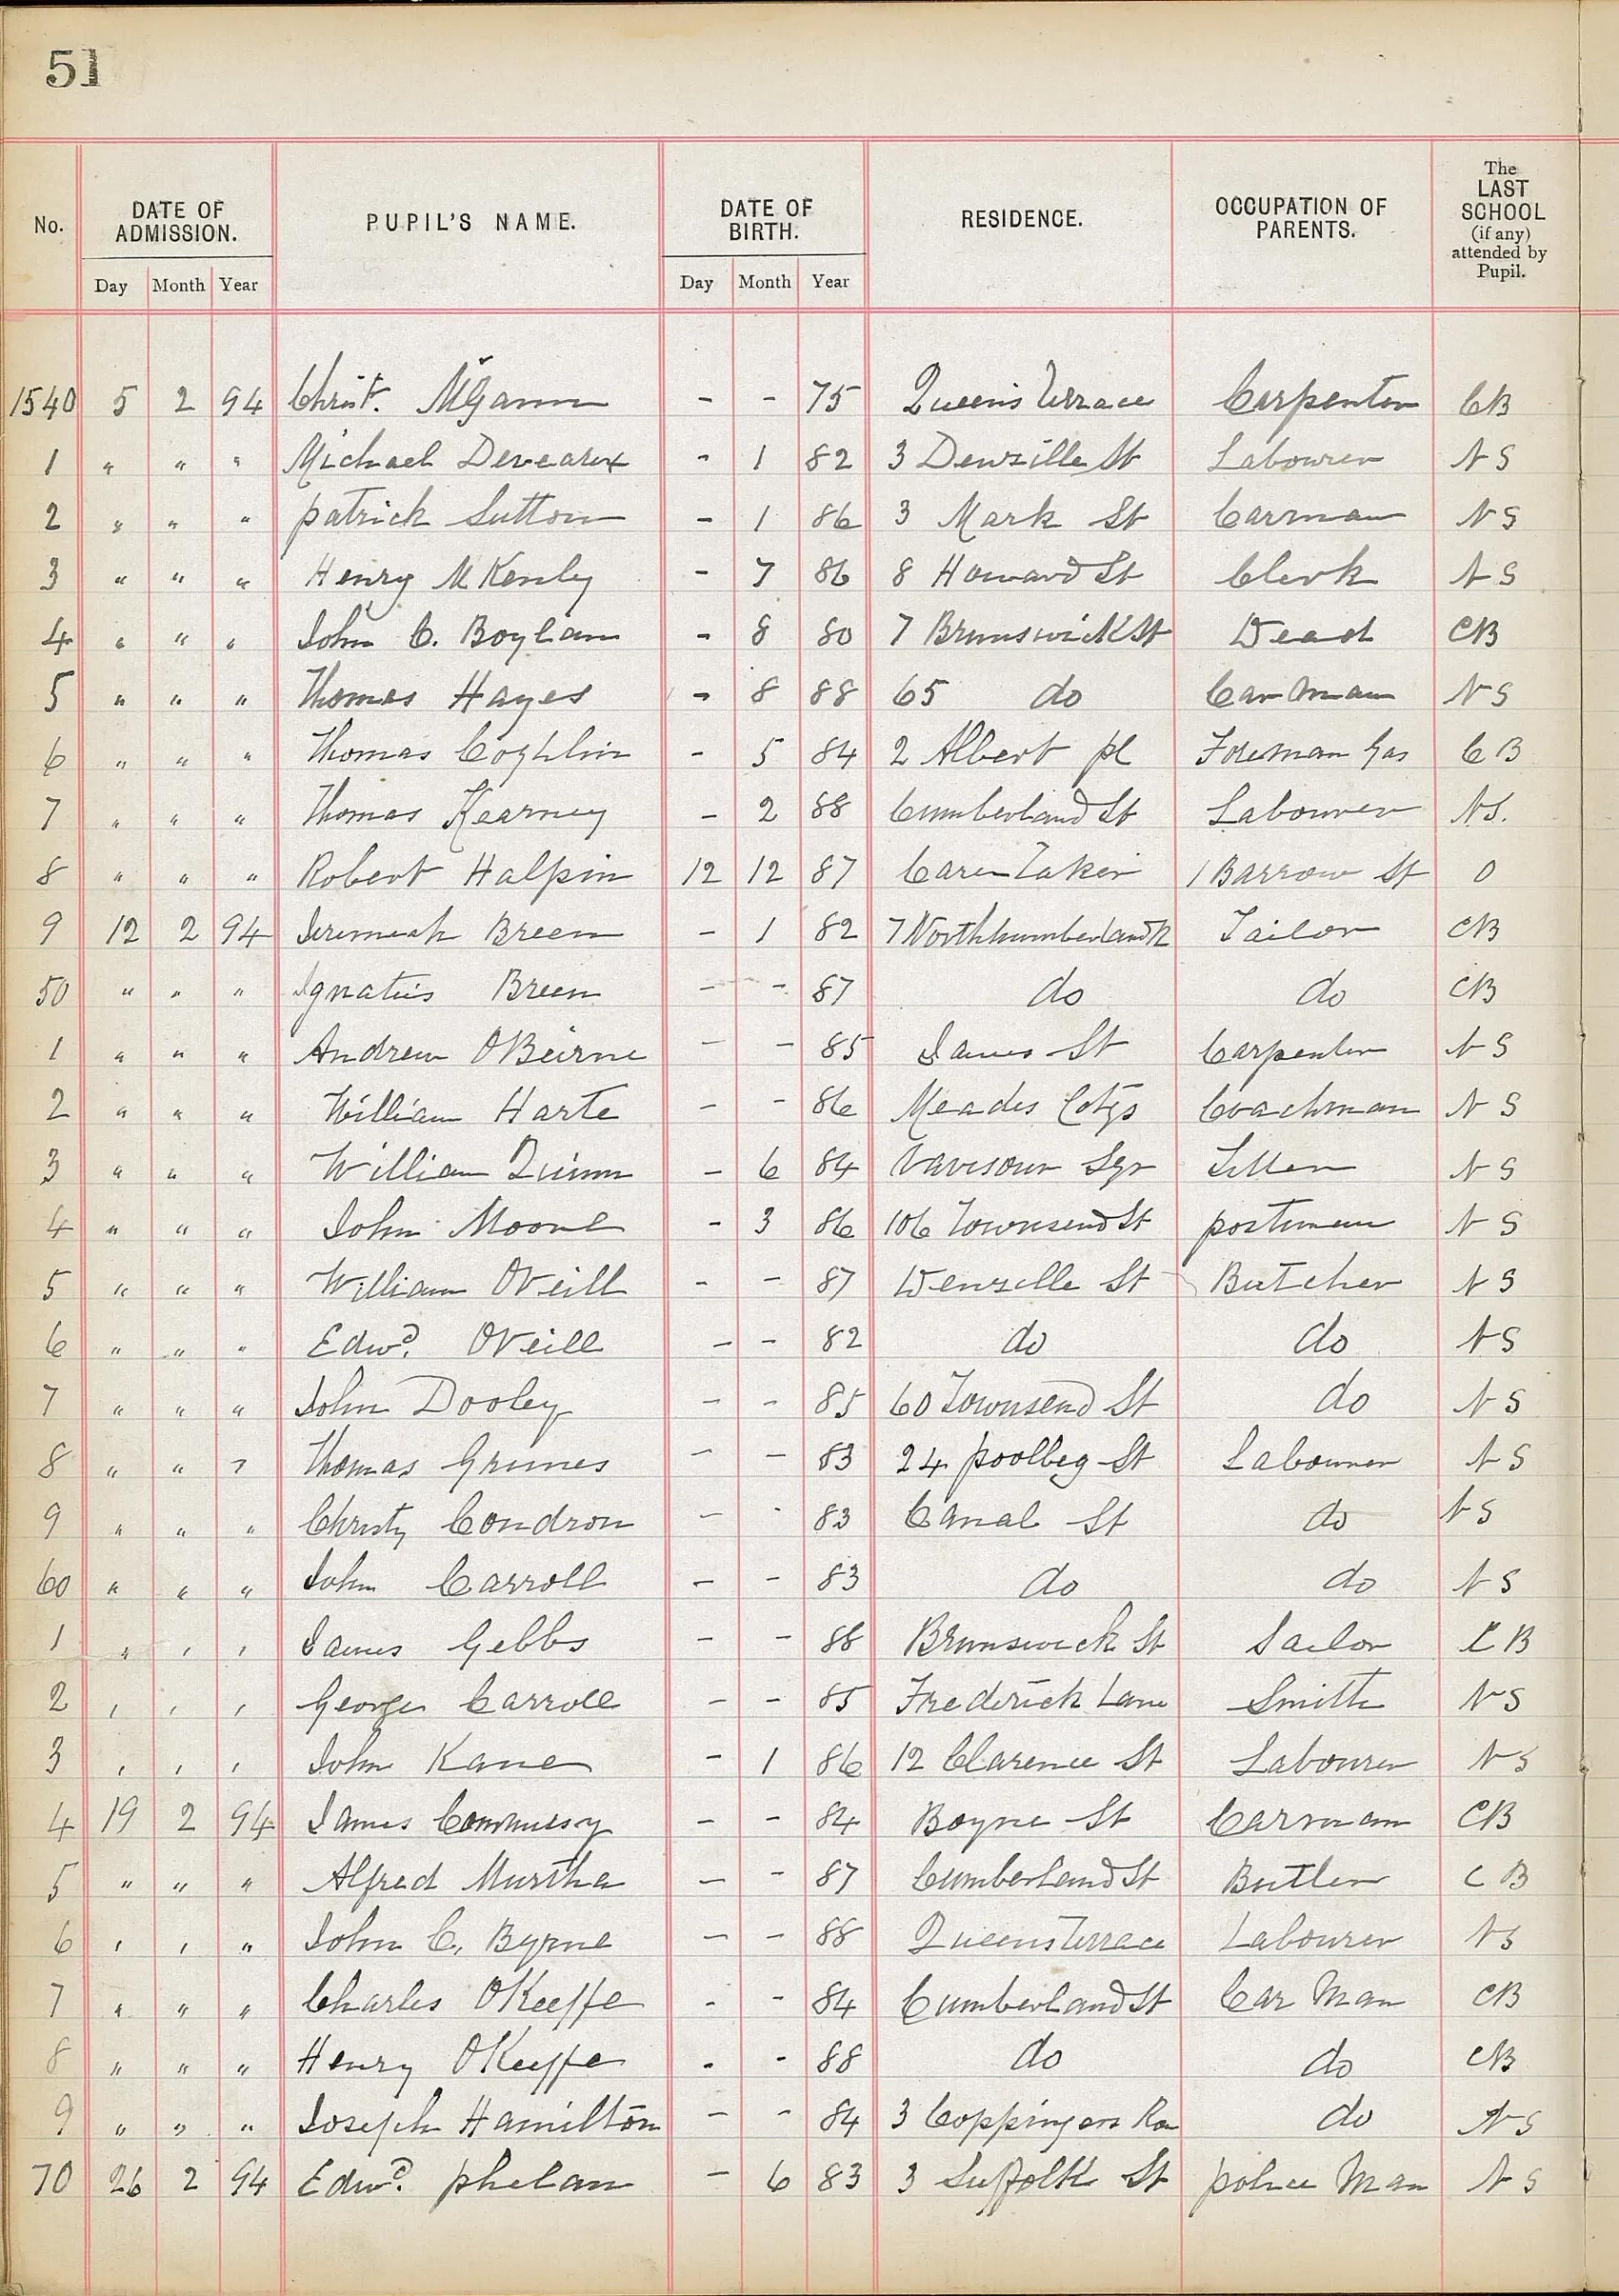 51
No. DATE OF ADMISSION. PUPIL'S NAME. DATE OF BIRTH. RESIDENCE. OCCUPATION OF PARENTS. The LAST SCHOOL (if any) attended by Pupil.
Day Month Year Day Month Year
1540 5 2 94 Christ. McGann - - 75 Queens Terrace Carpenter CB
1 " " " Michael Deveaux - 1 82 3 Denzille St Labourer NS
2 " " " patrick Sutton - 1 86 3 Mark St Carman NS
3 " " " Henry M Kenly - 7 86 8 Howard St Clerk NS
4 " " " John C. Boylan - 8 80 7 Brunswick St Dead CB
5 " " " Thomas Hayes - 8 88 65 do Car Man NS
6 " " " Thomas Coghlin - 5 84 2 Albert pl Foreman Gas CB
7 " " " Thomas Kearney - 2 88 Cumberland St Labourer NS.
8 " " " Robert Halpin 12 12 87 Care Taker 1 Barrow St 0
9 12 2 94 Jeremiah Breen - 1 82 7 Northhumberland Tailor CB
50 " " " Ignatius Breen - - 87 do do CB
1 " " " Andrew OBeirne - - 85 James St Carpenter NS
2 " " " William Harte - - 86 Meades Cotgs Coachman NS
3 " " " William Quinn - 6 84 Vavesour Sqr NS
4 " " " John Moore - 3 86 106 Townsend St postman NS
5 " " " William ONeill - - 87 Denzille St Butcher NS
6 " " " Edwd. ONeill - - 82 do do NS
7 " " " John Dooley - - 85 60 Townsend St do NS
8 " " " Thomas Grimes - - 83 24 poolbeg St Labourer NS
9 " " " Christy Condron - - 83 Canal St do NS
60 " " " John Carroll - - 83 do do NS
1 " " " James Gebbs - - 88 Brunswick St Sailor CB
2 " " " George Carroll - - 85 Frederick Lane Smith NS
3 " " " John Kane - 1 86 12 Clarence St Labourer NS
4 19 2 94 James - - 84 Boyne St Carman CB
5 " " " Alfred Murtha - - 87 Cumberland St Butler CB
6 " " " John C. Byrne - - 88 Queens Terrace Labourer NS
7 " " " Charles OKeeffe - - 84 Cumberland St Car Man CB
8 " " " Henry OKeeffe - - 88 do do CB
9 " " " Joseph Hamilton - - 84 3 Coppingers Row do NS
70 26 2 94 Edwd. phelan - 6 83 3 Suffolk St police Man NS